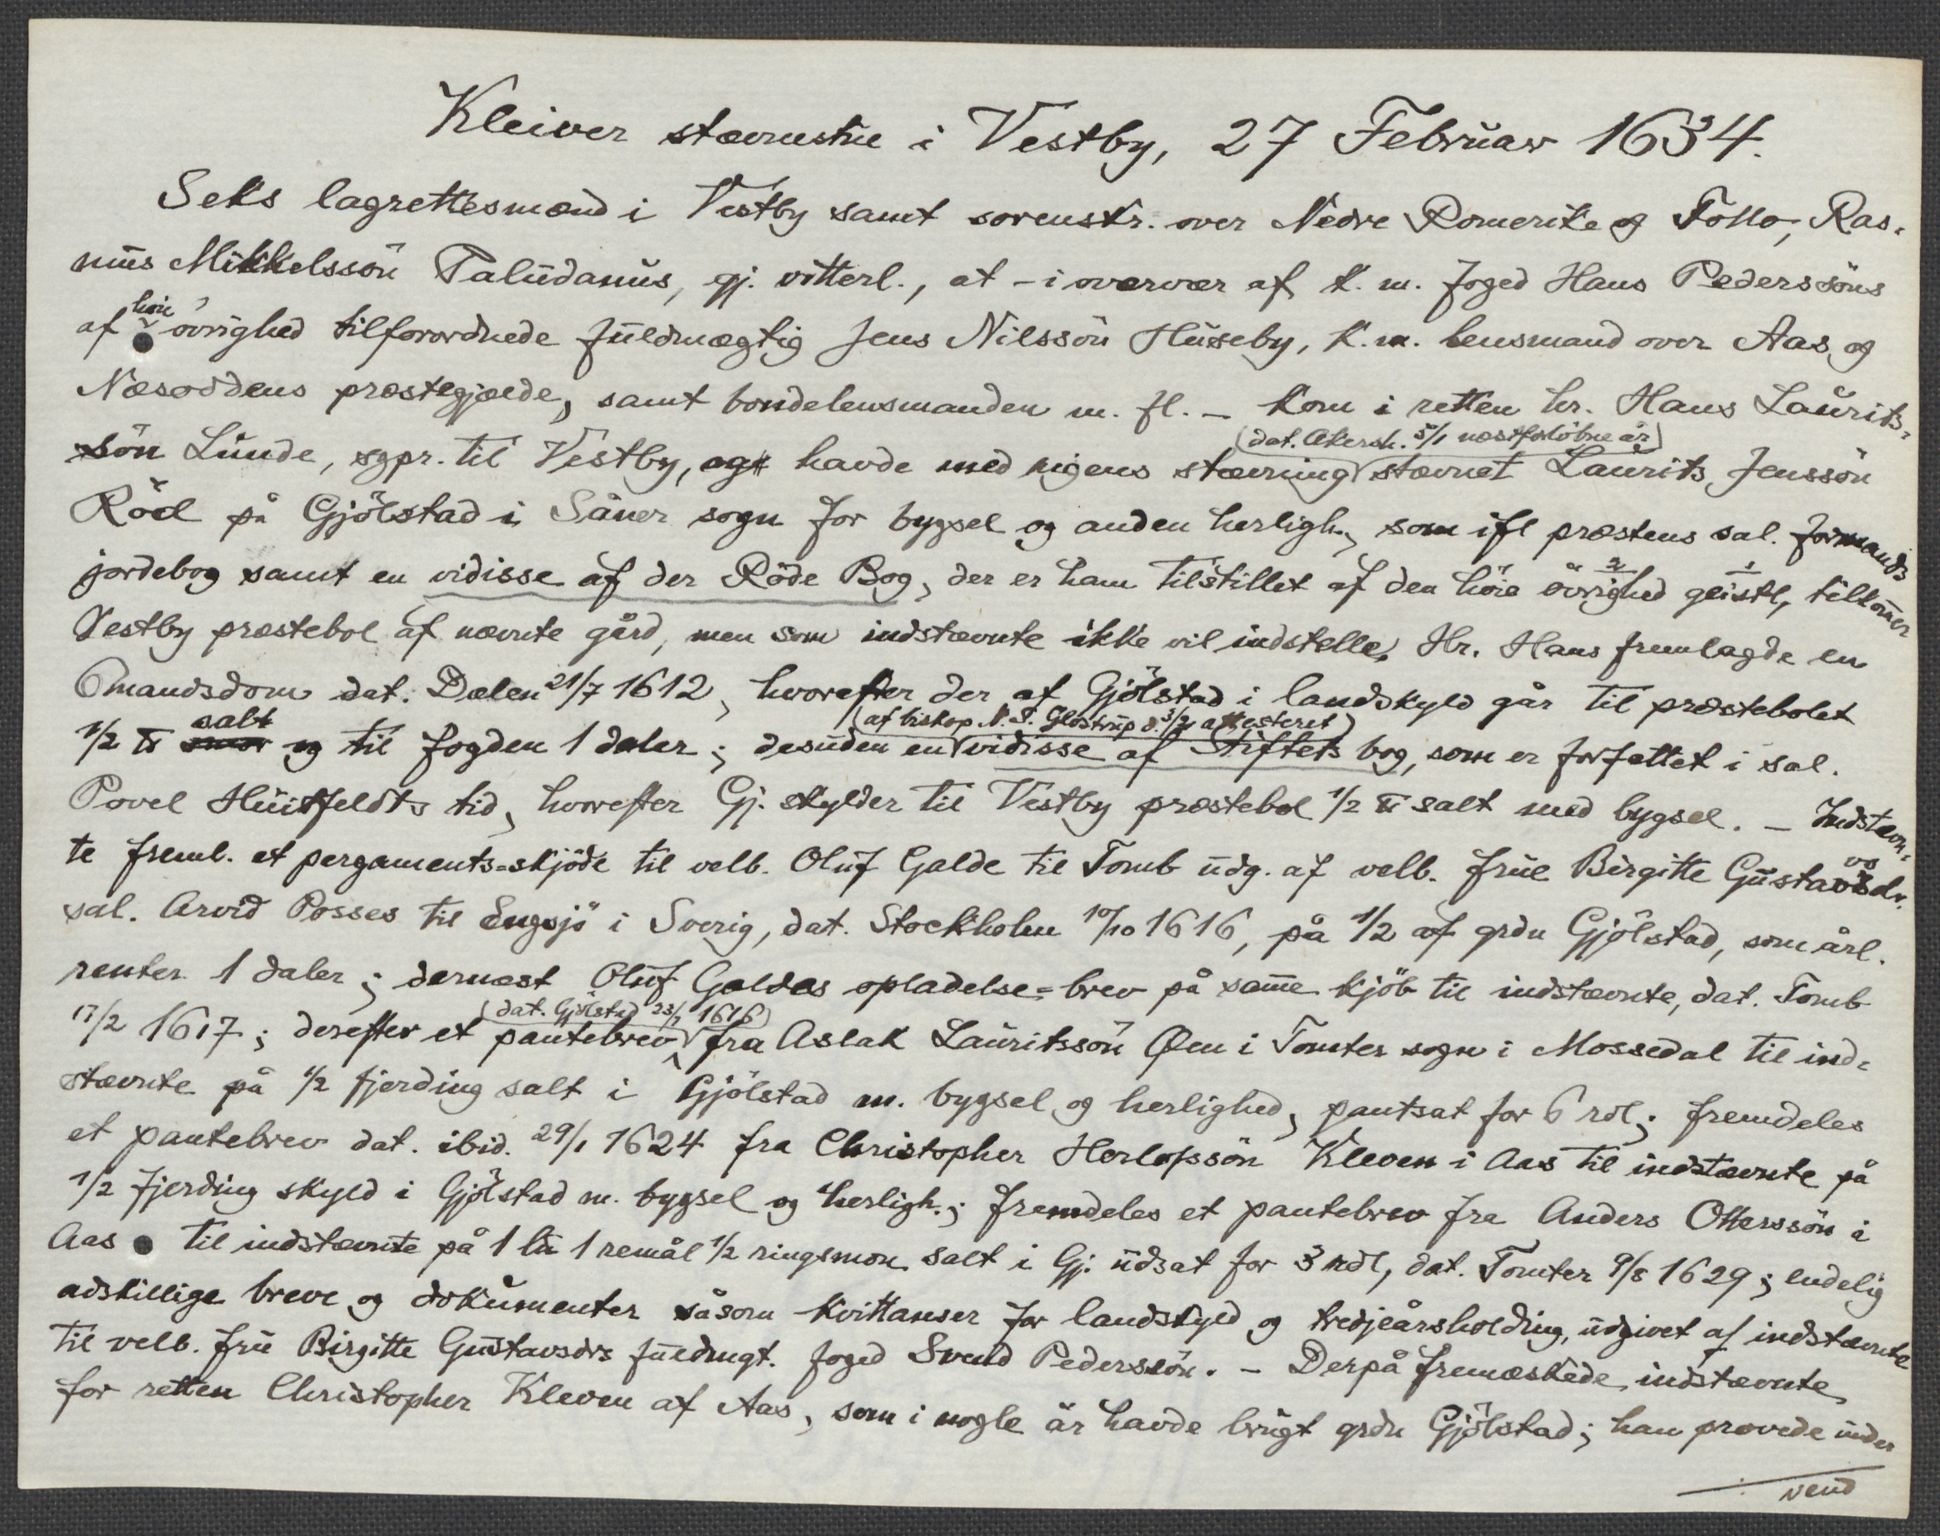 Kleiver stævnestue i Vestby, 27 Februar 1634.
Seks lagrettesmænd i Vestby samt sorenskr. over Nedre Romerike og Follo, Ras-
mus Mikkelssön Paludanus, gj. vitterl., at - i overvær af k. m. foged Hans Pederssöns
af höie övrighed tilforordnede fuldmægtig Jens Nilssön Huseby, k. m. lensmand over Aas og
Næsoddens præstegjælde, samt bondelensmanden m. fl. - kom i retten hr. Hans Laurits-
sön Lunde, sgpr. til Vestby, og havde med rigens stævning (dat. Akersh. 5/1 næstforløbne år) stævnet Laurits Jenssön
Röd på Gjölstad i Såner sogn for bygsel og anden herligh., som ifl præstens sal. formands
jordebog samt en vidisse af der Röde Bog, der er ham tilstillet af den höie övrighed 2 geistl, 1 tilkom̅er
Vestby præstebol af nævnte gård, men som indstævnte ikke vil indstelle. Hr. Hans fremlagde en
6mandsdom dat. Dælen 21/7 1612, hvorefter der af Gjölstad i landskyld går til præstebolet
1/2 ℔ salt og til fogden 1 daler; desuden en (af biskop N. S. Glostrup d. 3/2 attesteret) vidisse af Stiftets bog, som er forfattet i sal.
Povel Huitfeldts tid, hvorefter Gj. skylder til Vestby præstebol 1/2 ℔ salt med bygsel. - Indstævn-
te freml. et pergaments-skjöde til velb. Oluf Galde til Tomb udg. af velb. frue Birgitte Gustavsdr.
sal. Arvid Posses til Engsjö i Sverig, dat. Stockholm 10/10 1616, på 1/2 af grdn Gjölstad, som årl.
renter 1 daler; dernæst Oluf Galdes opladelse-brev på sam̅e kjöb til indstævnte, dat. Tomb
17/2 1617; derefter et pantebrev (dat. Gjölstad 23/1 1616) fra Aslak Lauritssön Øen i Tomter sogn i Mossedal til ind-
stævnte på 1/2 fjerding salt i Gjölstad m. bygsel og herlighed, pantsat for 6 rdl; fremdeles
et pantebrev dat. ibid. 29/1 1624 fra Christopher Herlofssön Kleven i Aas til indstævnte på
1/2 fjerding skyld i Gjölstad m. bygsel og herligh.; fremdeles et pantebrev fra Anders Otterssön i
Aas til indstævnte på 1 lu 1 remål 1/2 ringsmon salt i Gj. udsat for 3 rdl, dat. Tomter 9/8 1629; endelig
adskillige breve og dokumenter såsom kvittanser for landskyld og tredjeårsholding, udgivet af indstævnte
til velb. fru Birgitte Gustavsdrs fuldmgt. foged Svend Pederssön. - Derpå fremæskede indstævnte
for retten Christopher Kleven af Aas, som i nogle år havde brugt grdn Gjölstad; han prøvede under
vend